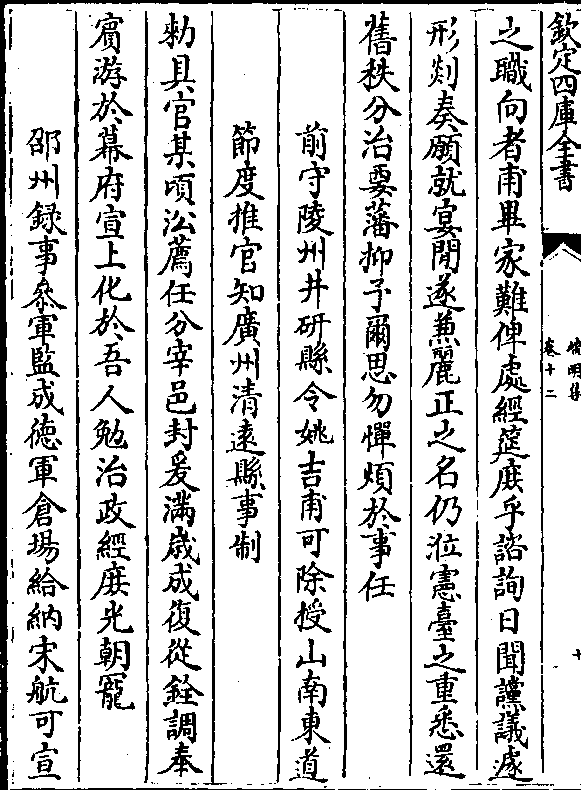 欽定四庫全書
卷十二
之職向者甫畢家難俾處經筵庶乎諮詢日聞讜議遽
形剡奏願就宴閒遂兼麗正之名仍涖憲臺之重悉還
舊秩分治要藩抑予爾思勿憚煩於事任
前守陵州井研縣令姚吉甫可除授山南東道
節度推官知廣州清遠縣事制
勑具官某頃㳂薦任分宰邑封爰滿歲成復從銓調奉
賓游於幕府宣上化於吾人勉治政經庶光朝寵
邵州録事叅軍監成德軍倉場給納宋航可宣